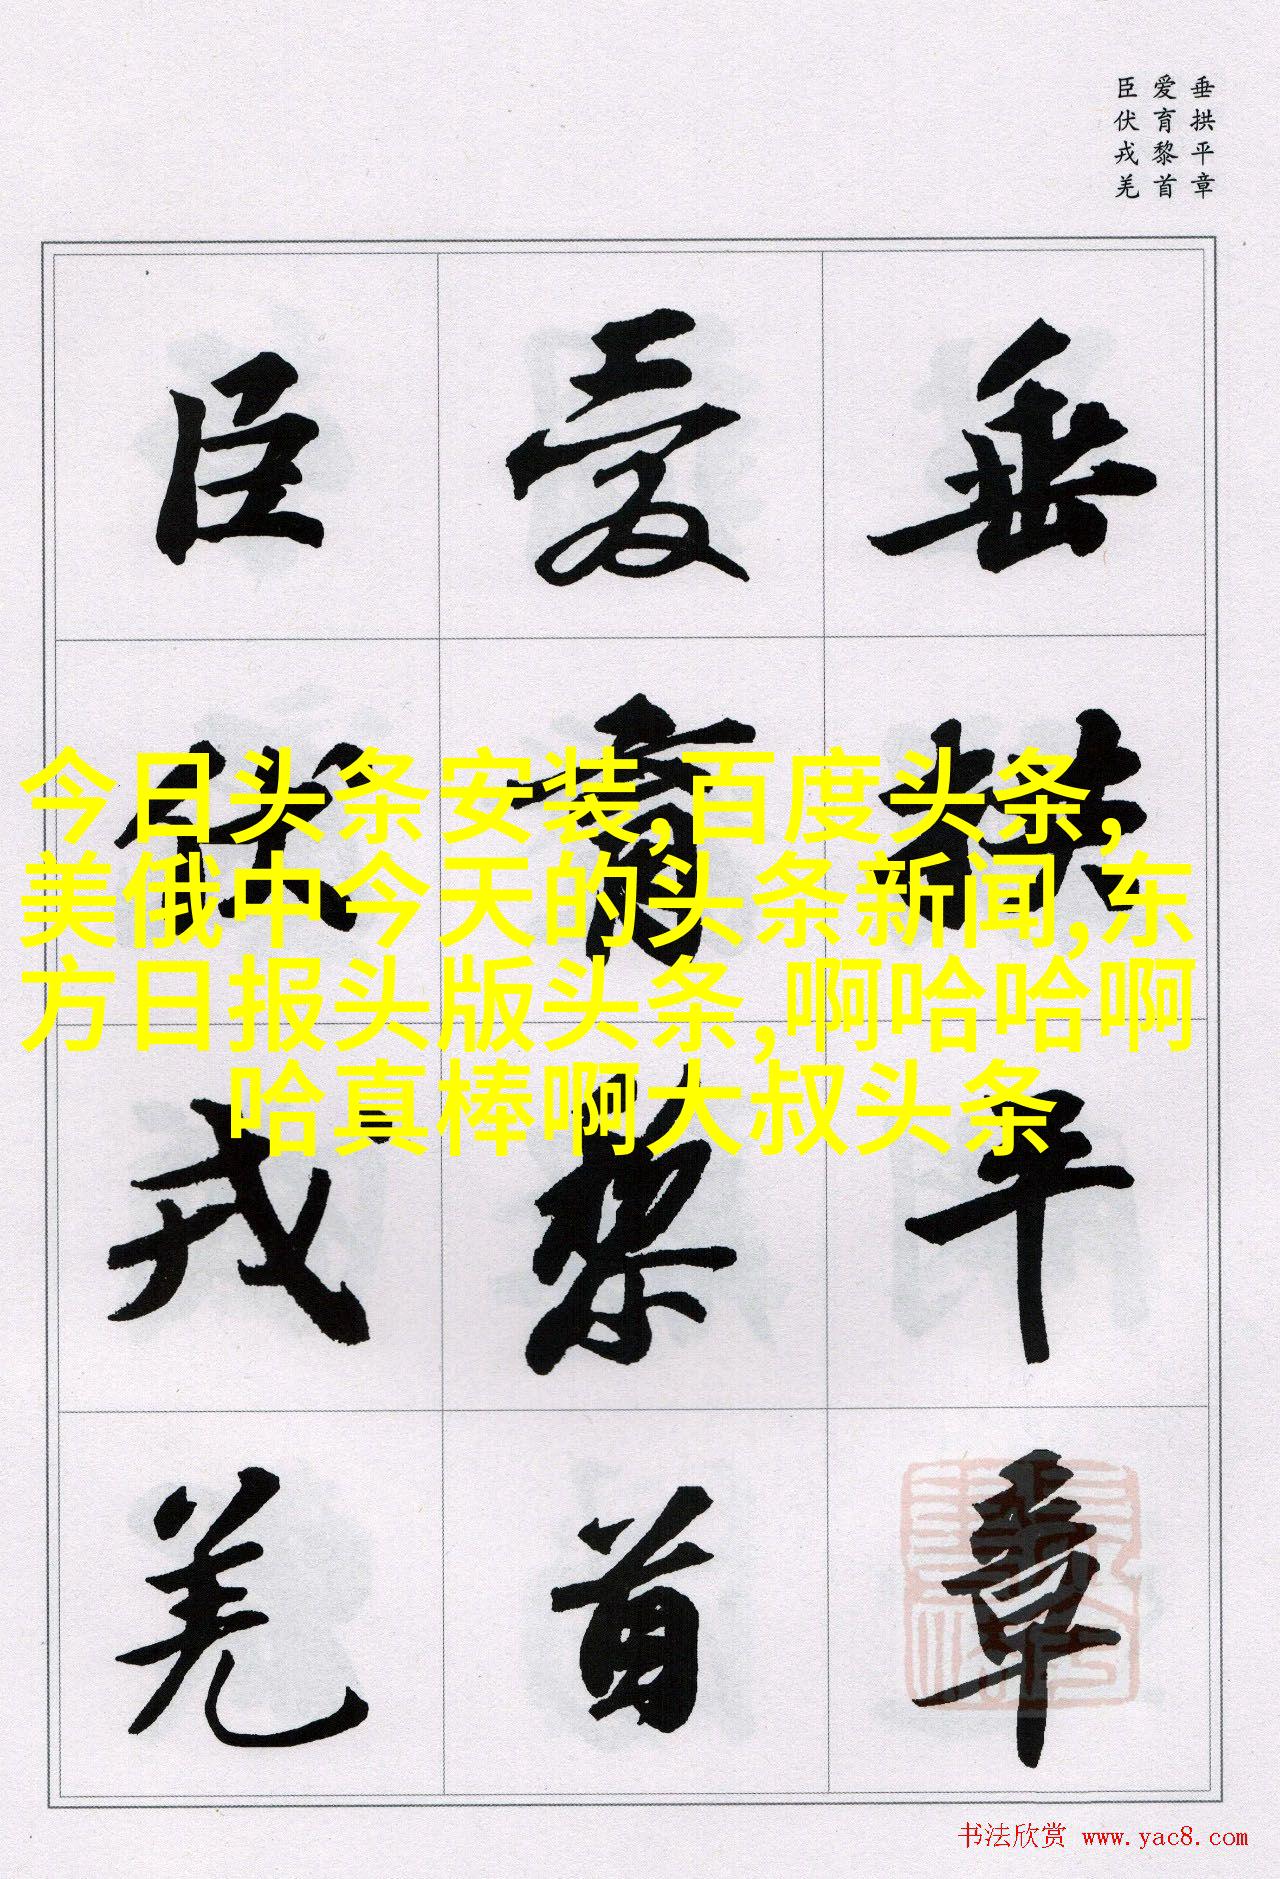 垂拱平章
爱育黎首
臣伏戎羌
垂拱平章
爱育黎首
臣伏戎羌
今日头条安装,百度头条,
美俄中今天的头条新闻,东
方日报头版头条,啊哈哈啊
哈真棒啊大叔头条
书法欣赏 www.yac8.com